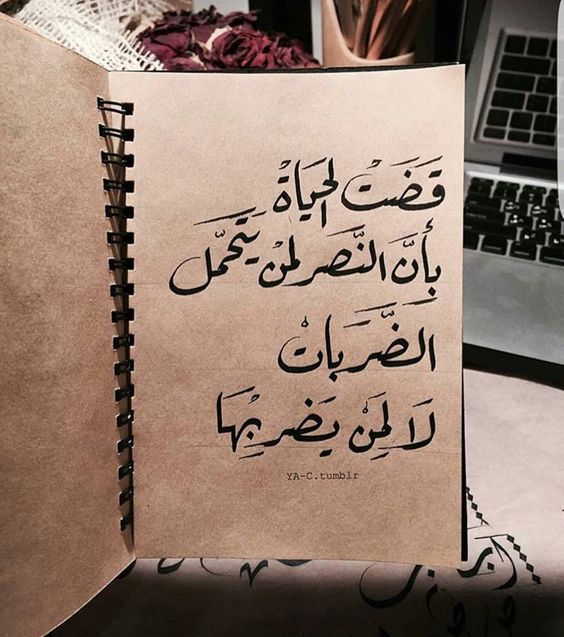 قَضَتْ الحَيَاةْ
بِأَنَّ النَّصر لمن يَتَحَمَّل
الضَّرَبَاتْ
لَا لِمَنْ يَضربُهَا
YA-C.tumblr